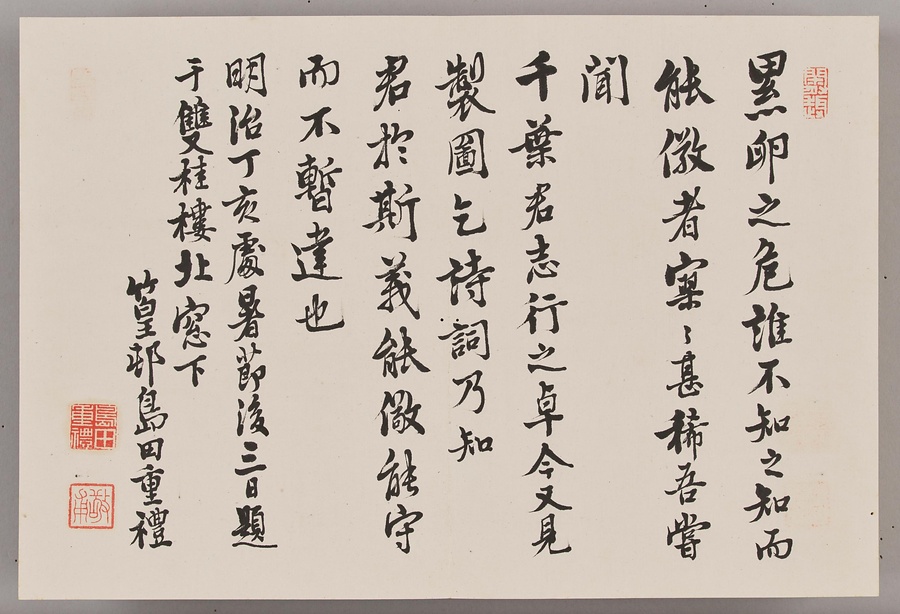 累卵之危誰不知之知而
能儆者寥〻甚稀吾嘗
聞
千葉君志行之卓今又見
製圖乞詩詞乃知
君於斯義能儆能守
而不暫違也
明治丁亥處暑節後三日題
于雙桂樓北窓下
篁邨島田重禮
島田重禮
敬甫